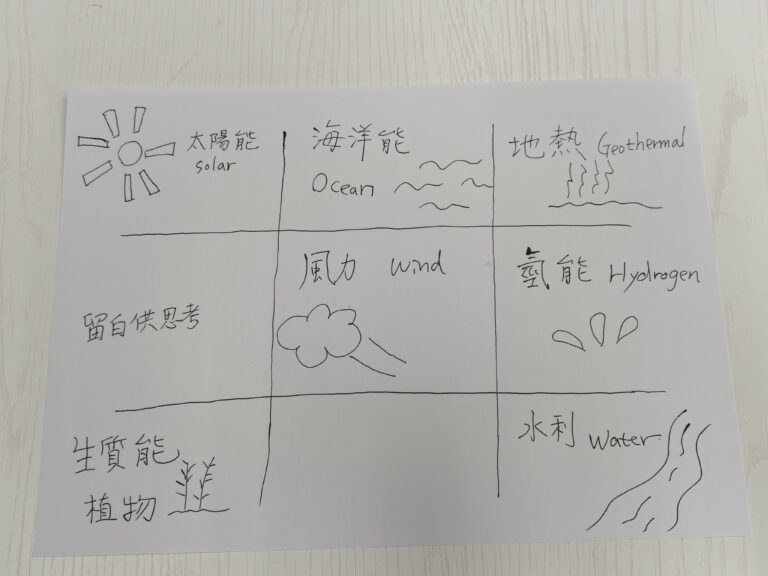 太陽能
solar
海洋能
Ocean
地熱 Geothermal
留白供思考
風力 Wind
氫能 Hydrogen
生質能
植物
水利 Water